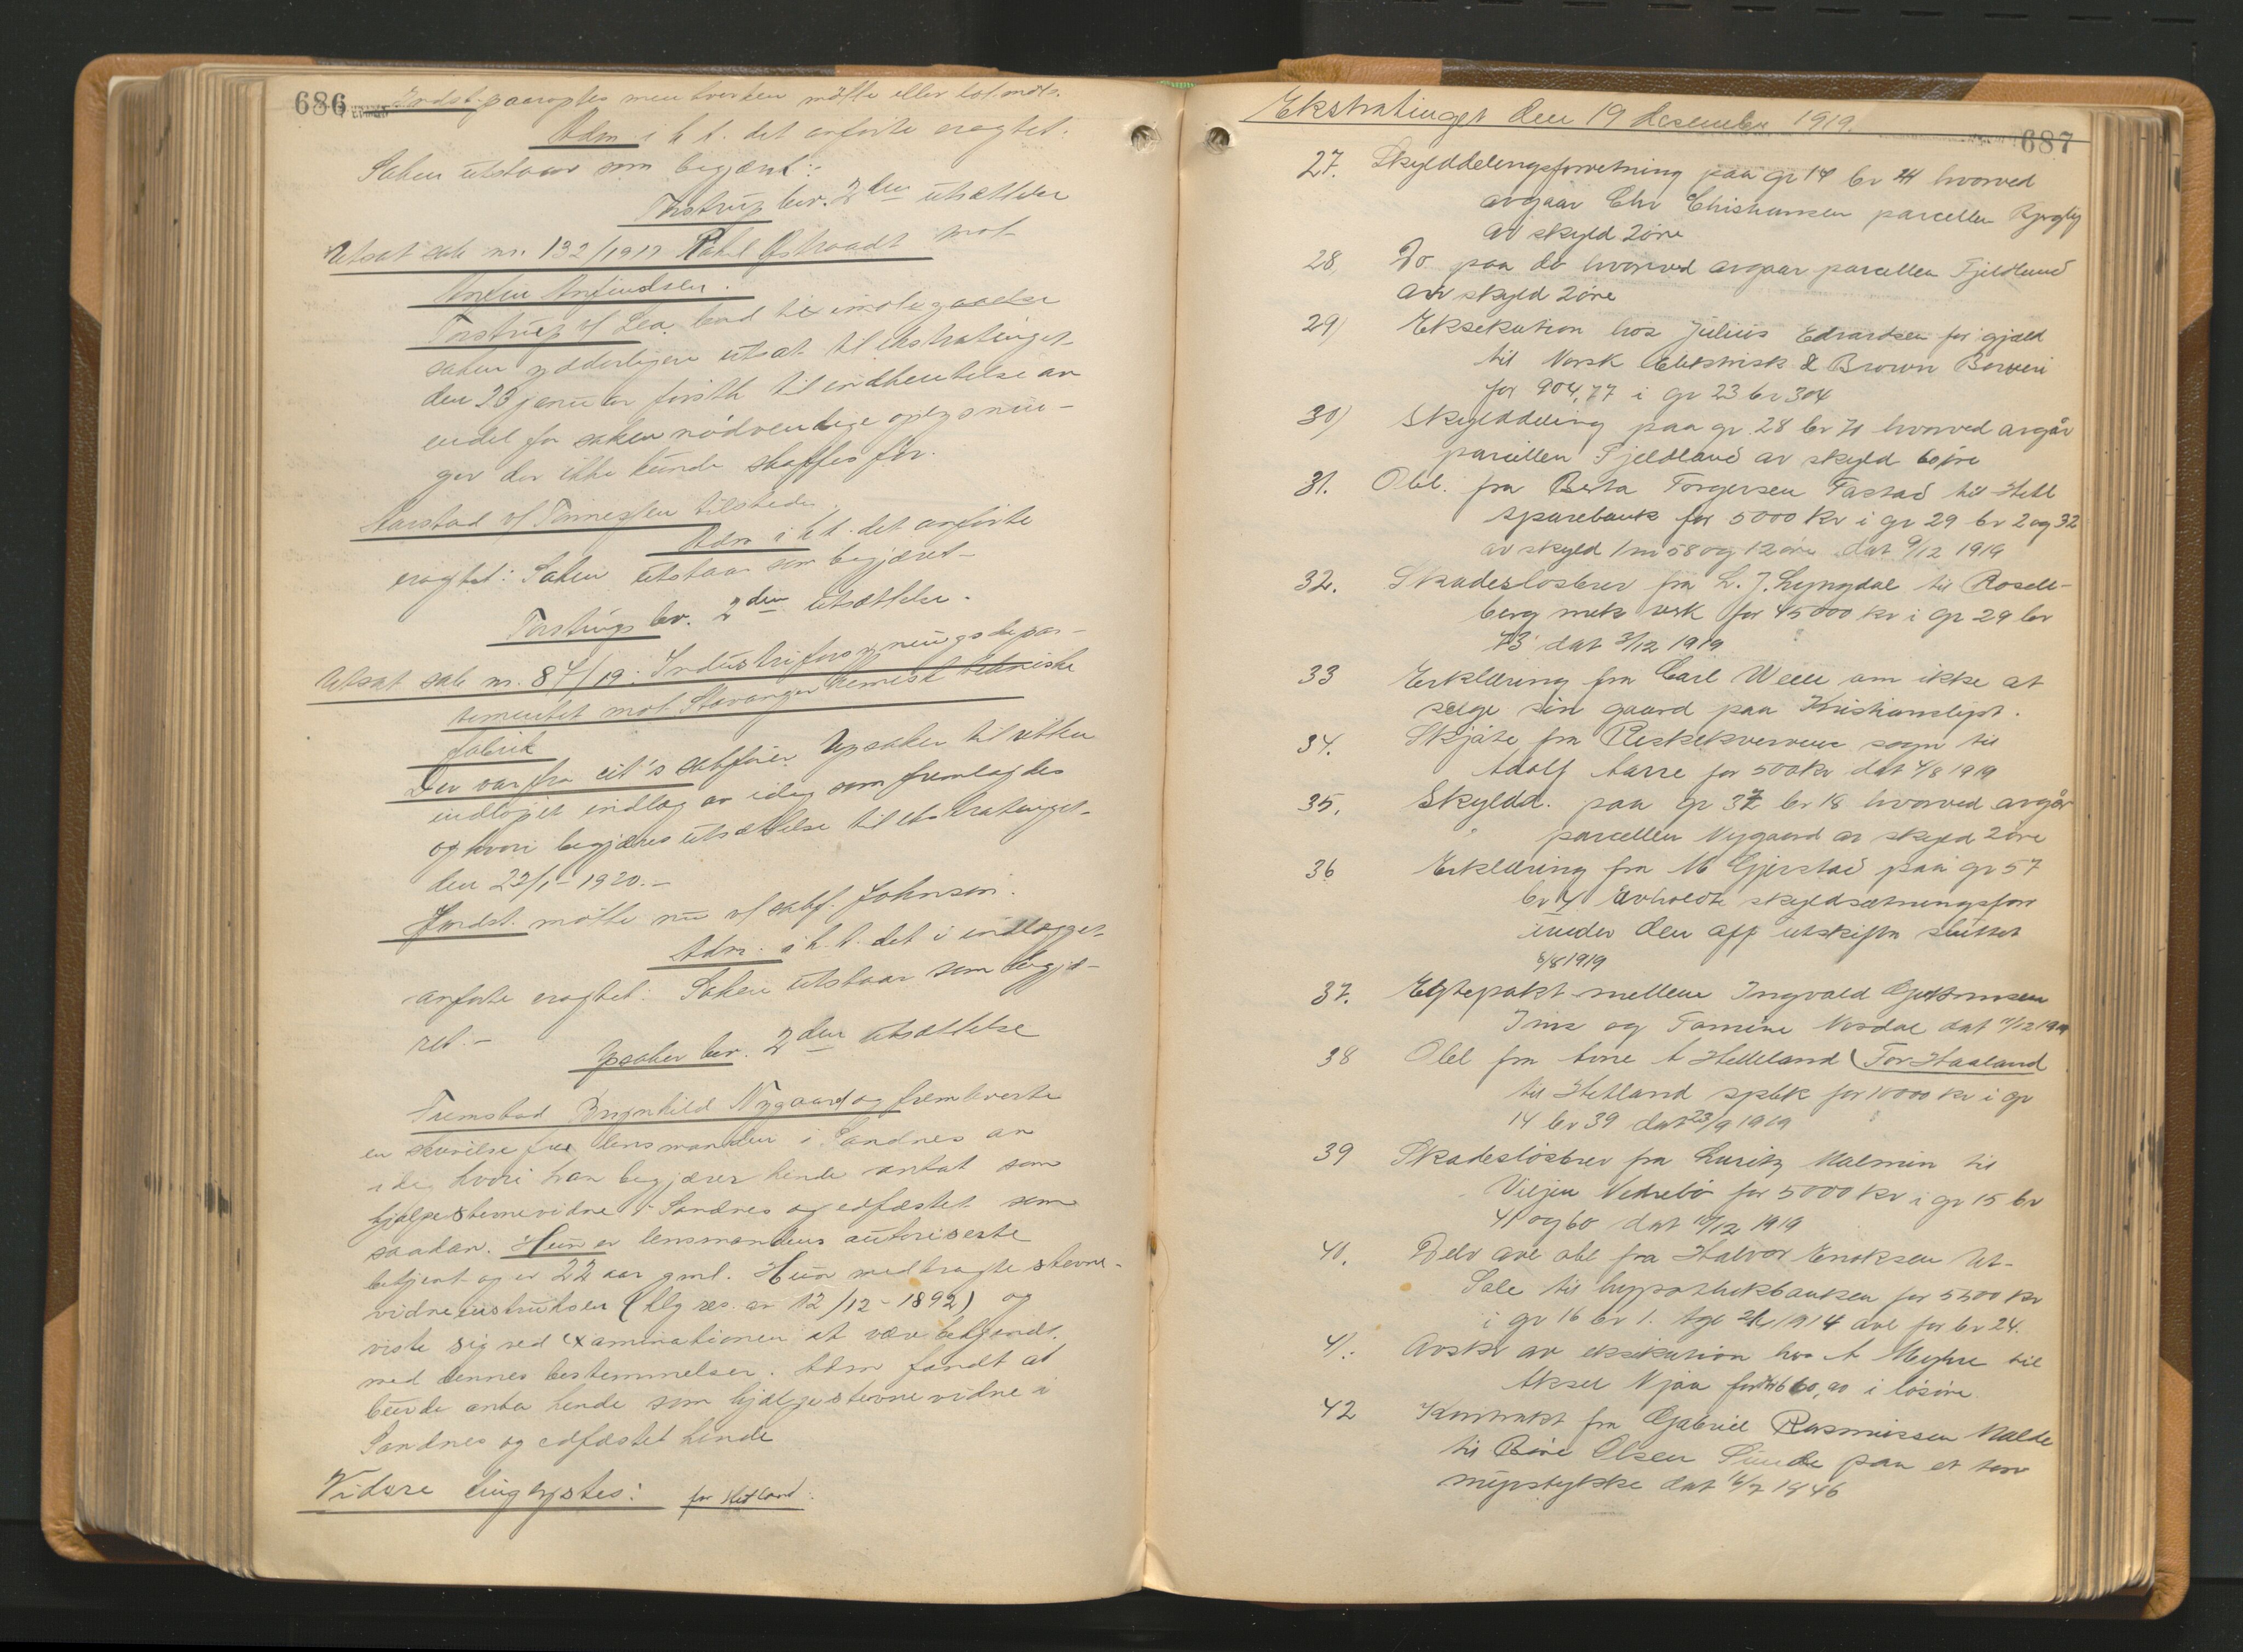 686
Indst. paaroptes men hverken møtte eller lot møte.
Adm i h t. det anførte eragtet:
Saken utstaar som begjært:
Torstrup bev. 2den utsættelse
Utsat sak nr. 132/1919 Rakel Østraadt mot
Anfindsen.
Torstrup vf Lea bad til imøtegaaelse
saken ydderligere utsat til ekstratinget
den 23 januar førstk til indhentelse av
endel for saken nødvendige oplysnin-
ger der ikke kunde skaffes før.
Aarstad vf Tønnesen tilstede.
Adm i h t. det anførte
eragtet: Saken utstaar som begjæret
Torstrups bev. 2den utsættelse.
Utsat sak nr. 84/19: Industriforsyningsdepar-
tementet mot Stavanger kemisk tekniske
fabrik
Der var fra cit's sakfører Ypsaker til retten
indløpet indlæg av idag som fremlagdes
og hvori begjæres utsættelse til ekstratinget
den 22/1-1920.-
Indst. møtte nu vf sakf. Johnson.
Adm. i h. t. det i indlægget
anførte eragtet: Saken utstaar som begjæ-
ret.-
Ypsaker bev. 2den utsættelse
Fremstod Brynhild Nygaard og fremleverte
en skrivelse fra lensmanden i Sandnes av
idag hvori han begjærer hende antat som
hjælpestevnevidne i Sandnes og edfæstet som
saadan. Hun er lensmandens autoriserte
betjent og er 22 aar gml. Hun medbragte stevne-
vidneinstruksen (klg res. av 12/12-1892) og
viste sig ved examinationen at være bekjendt
med dennes bestemmelser. Adm fandt at
burde anta hende som hjælpestevnevidne i
Sandnes og edfæstet hende
Videre tinglystes: for Hetland:
Ekstratinget den 19 desember 1919.
687
27. Skylddelingsforretning paa gr 14 br 24 hvorved
avgaar Chr Christiansen parcellen
av skyld 2øre
28, Do paa do hvorved avgaar parcellen Fjeldlund
av skyld 2øre
29) Eksekution hos Julius Edvardsen for gjæld
til Norsk Elektrisk & Brown Boweri
for 904,77 i gr 23 br 304
30) Skylddeling paa gr. 28 br 70 hvorved avgår
parcellen Fjeldland av skyld 60øre
31. Obl. fra Berta Torgersen Tastad til Hetl
sparebank for 5000 kr i gr 29 br 2 og 32
av skyld 1m 58 og 12 øre dat 9/12 1919
32. Skadesløsbrev fra L. J. Lyngdal til Rosen-
berg mek verk for 45000 kr i gr 29 br
43 dat 3/12 1919
33 Erklæring fra Carl Weee om ikke at
sælge sin gaard paa Kristianslyst.
34. Skjøte fra sogn til
Adolf Aarre for 500kr dat 4/8 1919
35. Skyldd. paa gr 37 br 18 hvorved avgår
parcellen Nygaard av skyld 2øre
36 Erklæring fra M Gjerstad paa gr 57
br 4 avholdt skyldsætningsforr
under den off utskiftn sluttet
8/8 1919
37. Egtepakt mellem Ingvald
Ims og Tomine Nordal dat 11/12 1919
38 Obl fra Aone A Helleland (Tor Haaland
til Hetland spbk for 10000 kr i gr
14 br 39 dat 23/9 1919
39 Skadesløsbrev fra Lauritz Malmin til
Viljen Vedrebø for 5000 kr i gr 15 br
41 og 60 dat 10/12 1919
40. Delv avl obl fra Halvor Eriksen Ut-
Sole til hypothekbanken for 5500 kr
i gr 16 br 1. tgl 1914 avl for br 24.
41: Avskr av eksekution hos A Myhre til
Aksel Njaa for 60,00 i løsøre
42 Kontrakt fra Gabriel Rasmussen Malde
til Olsen Sunde paa et torv
myrstykke dat